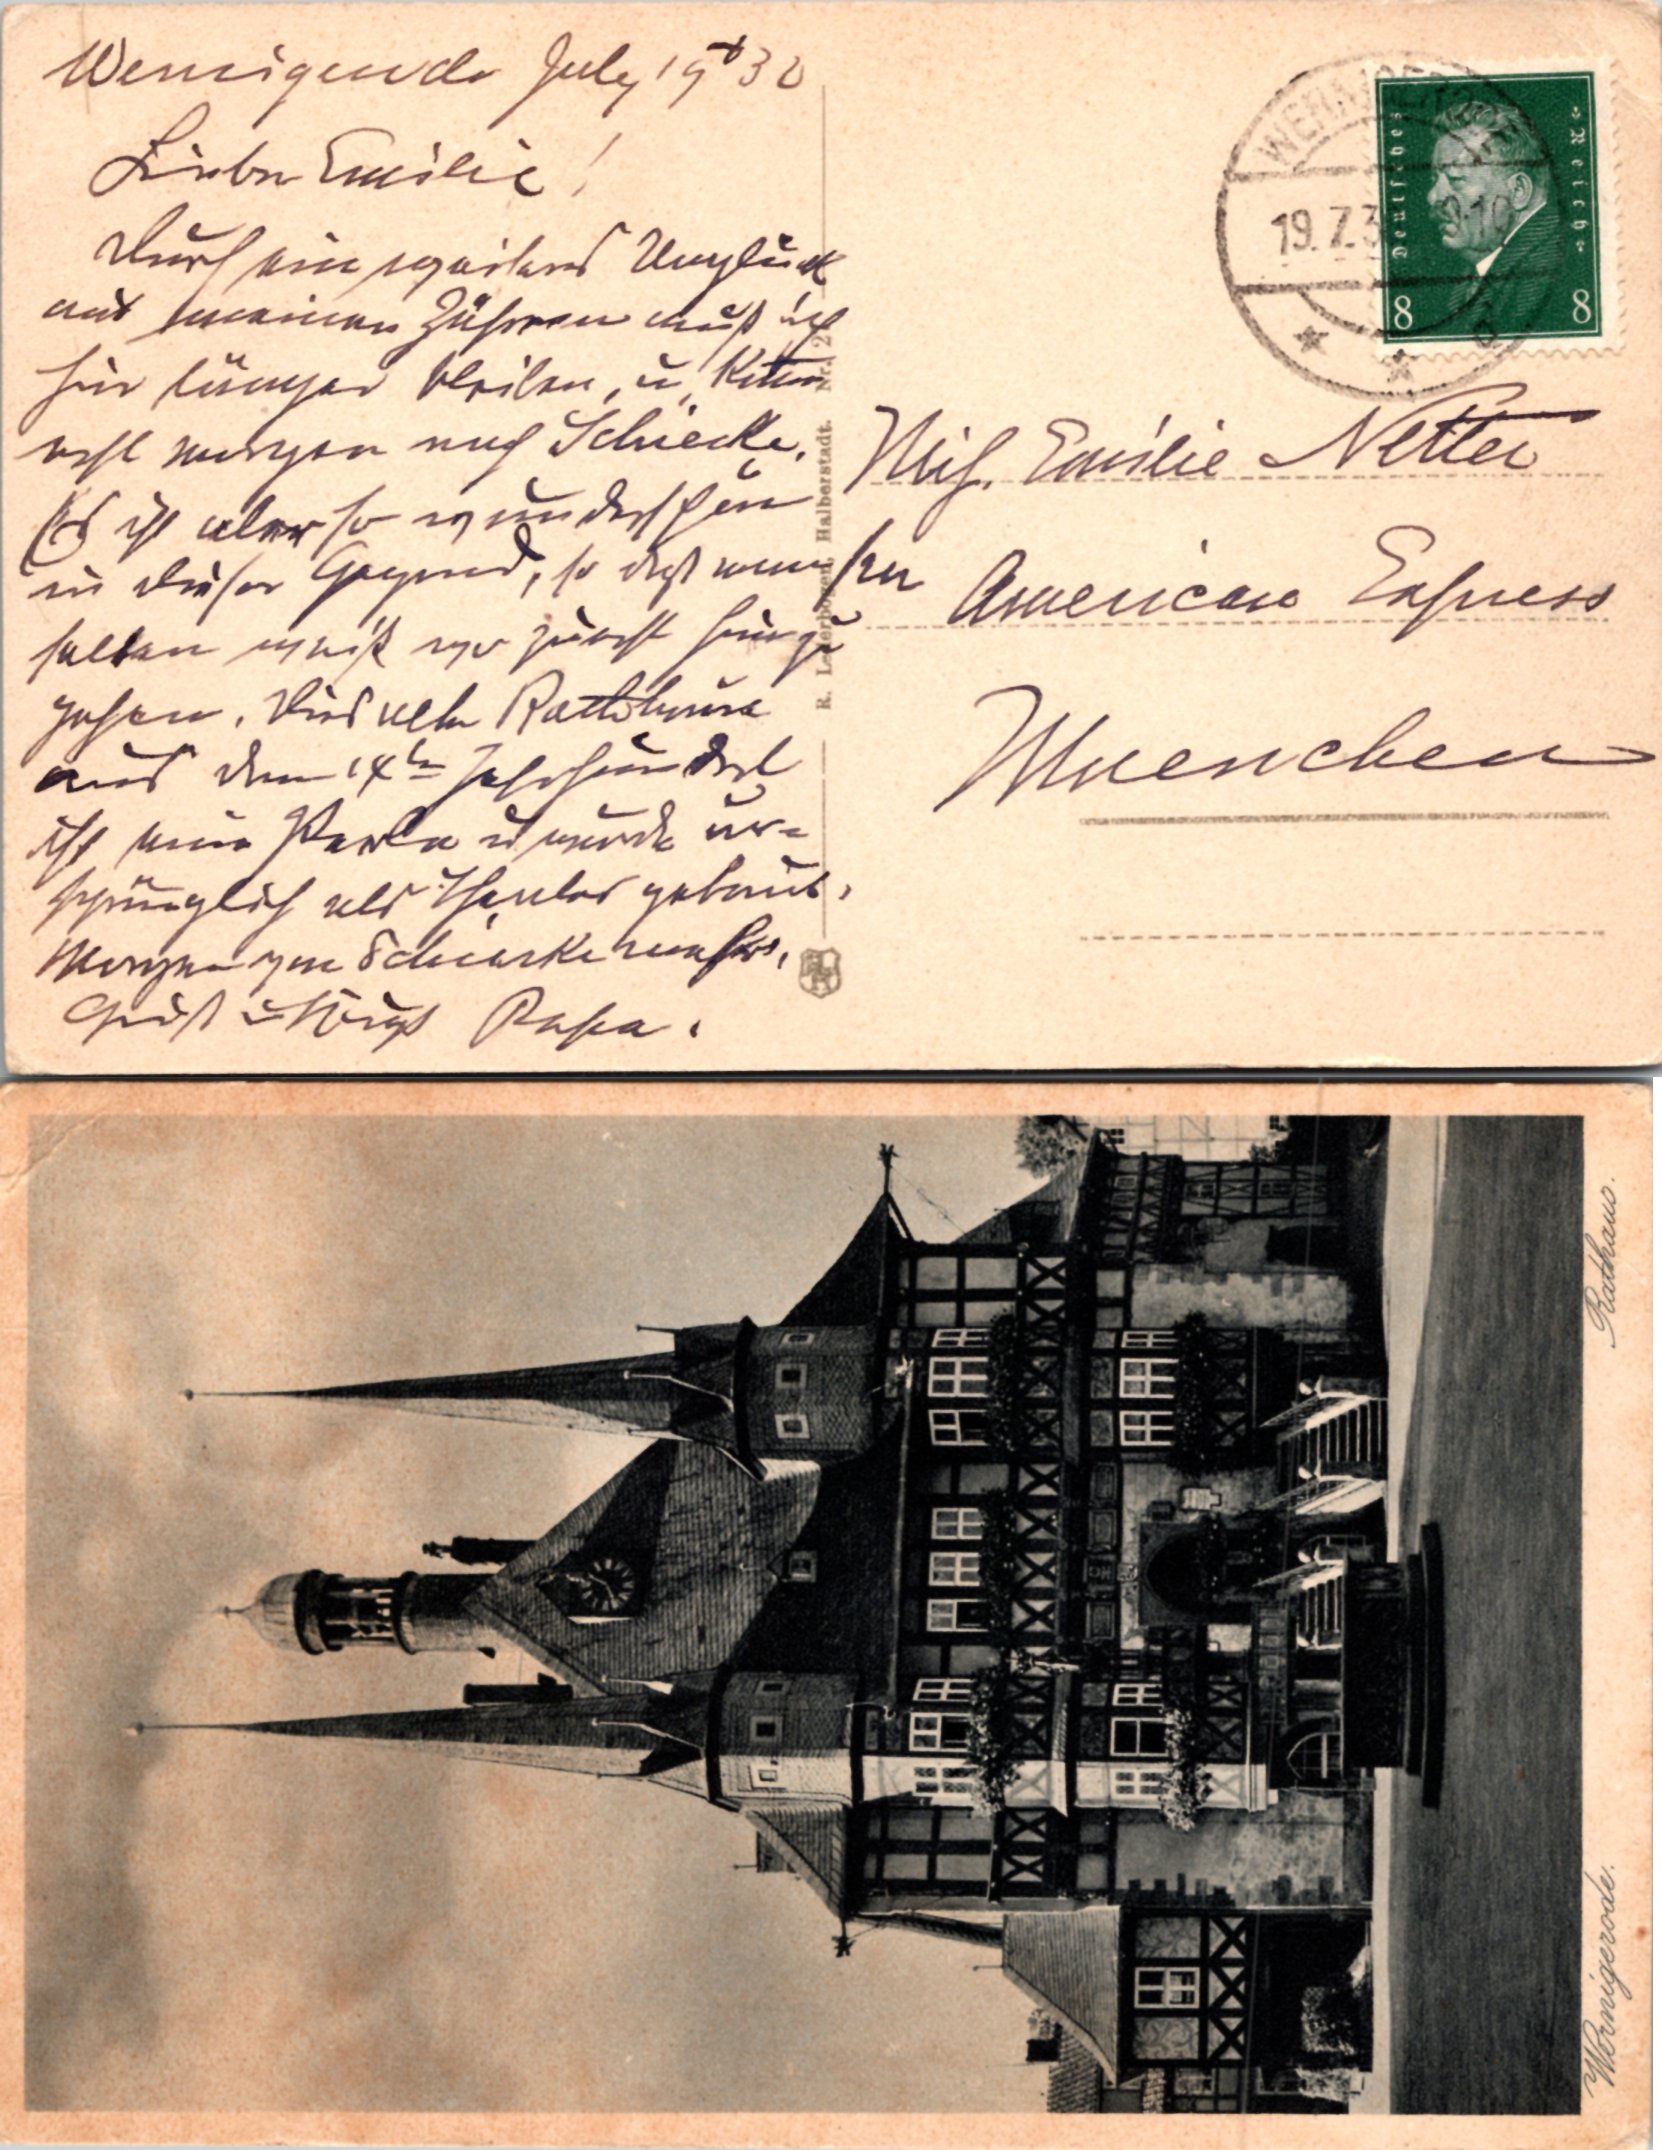 Wernigerode July 19t 30
Liebe Emilie!
Durch ein weiteres Unglück
mit meinen Zähnen muß ich
hier länger bleiben, u.
erst morgen nach Schierke.
Es ist aber so wunderschön
in dieser Gegend, so daß man
selten weiß wo zuerst hinzu
gehen. Dies alte Rathhaus
aus dem 14ten Jahrhundert
ist eine Perle u wurde ur-
sprünglich als Theater gebaut.
Morgen von Schierke mehr.
Gruß u Kuß Papa.
R. Lederbogen, Halberstadt. Nr. 2
WERNIGERODE
19.7.3 9-10
Deutsches Reich
8 8
Miß. Emilie Netter
American Express
Muenchen
Wernigerode. Rathaus.